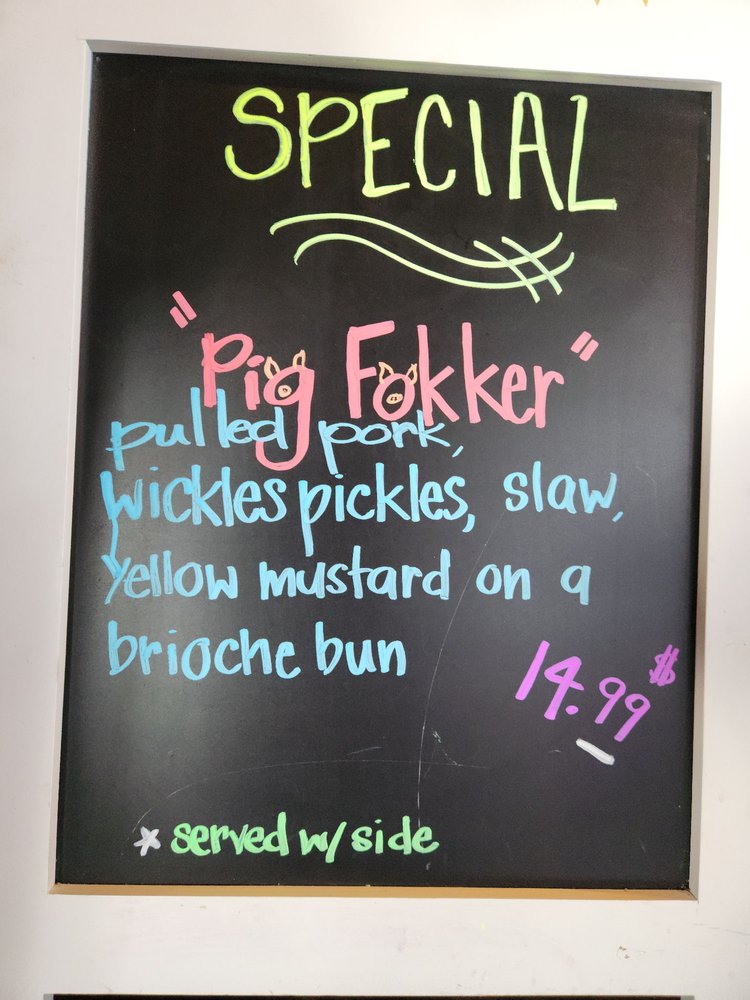 SPECIAL
"Pig Fokker"
pulled pork,
Wickles pickles, slaw,
yellow mustard on a
brioche bun
14.99$
* served w/ side